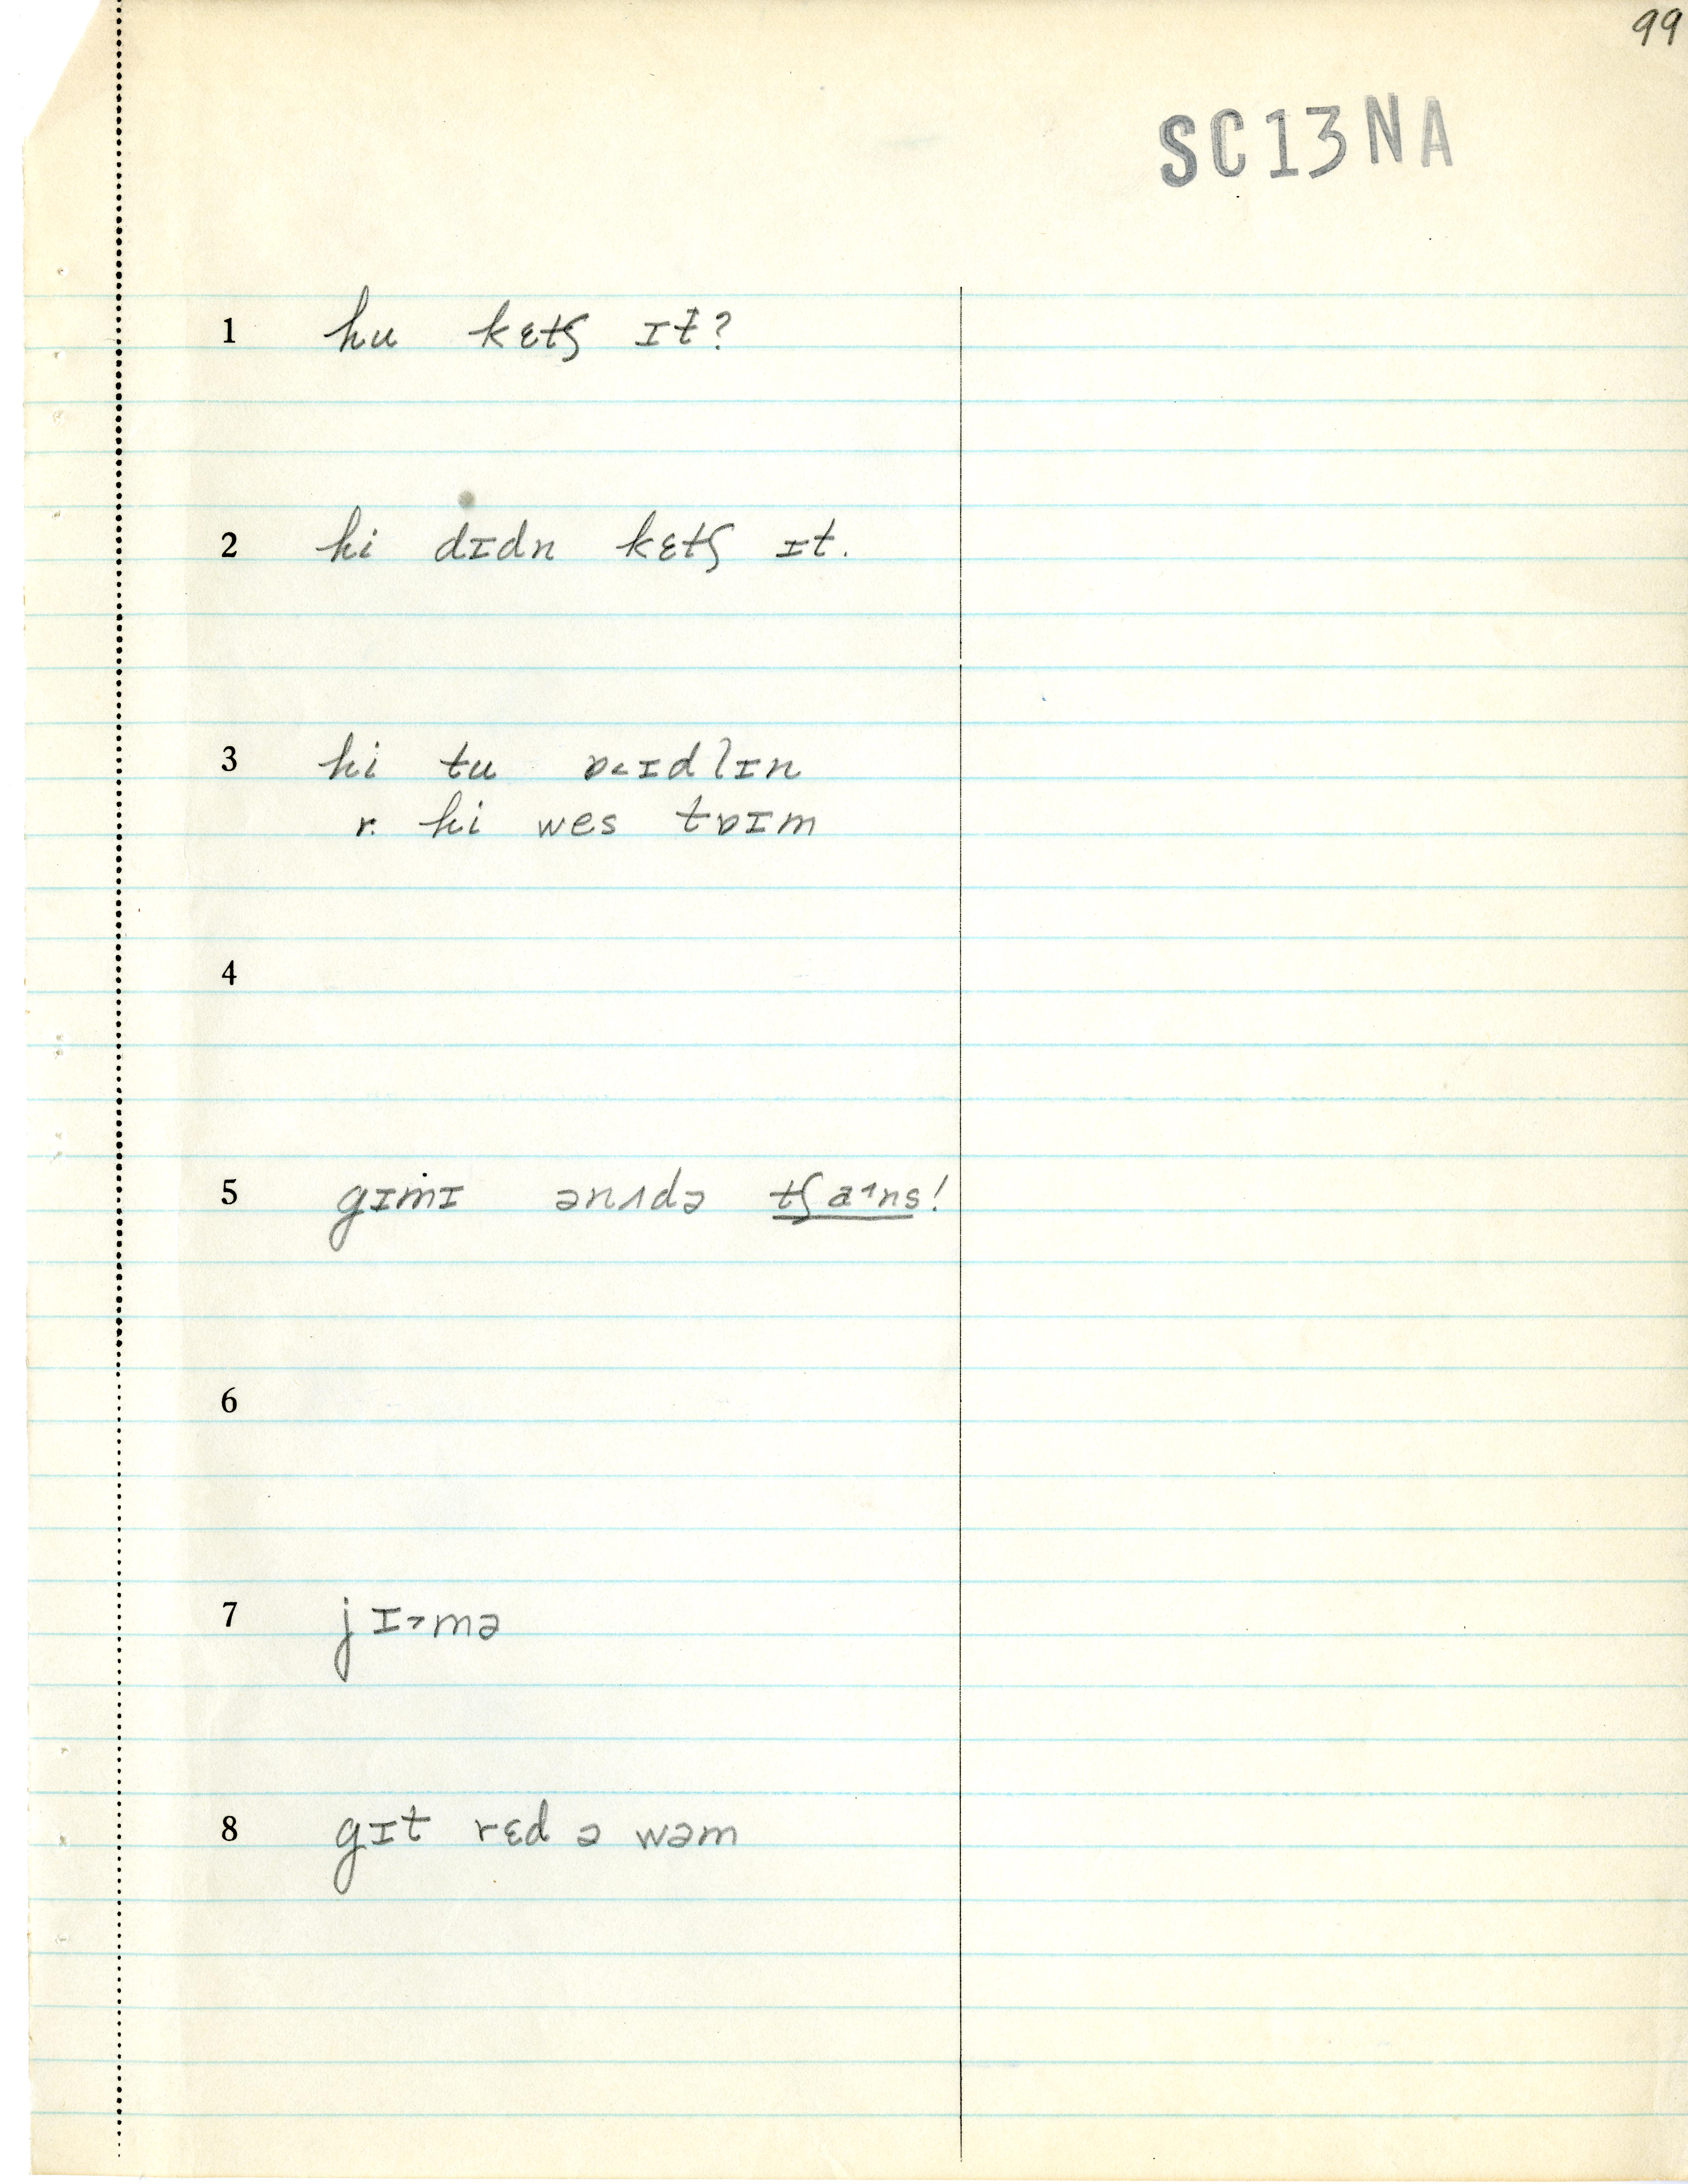 99
SC13NA
1 hu kɛtʃ ɪt?
2 hi dɪdn kɛtʃ ɪt.
3 hi tu ɒ˂ɪdlɪn
r. hi wes tɒɪm
4
5 gɪmɪ ənʌdə tʃa˔ns!
6
7 jɪ˃mə
8 gɪt rɛd ə wəm